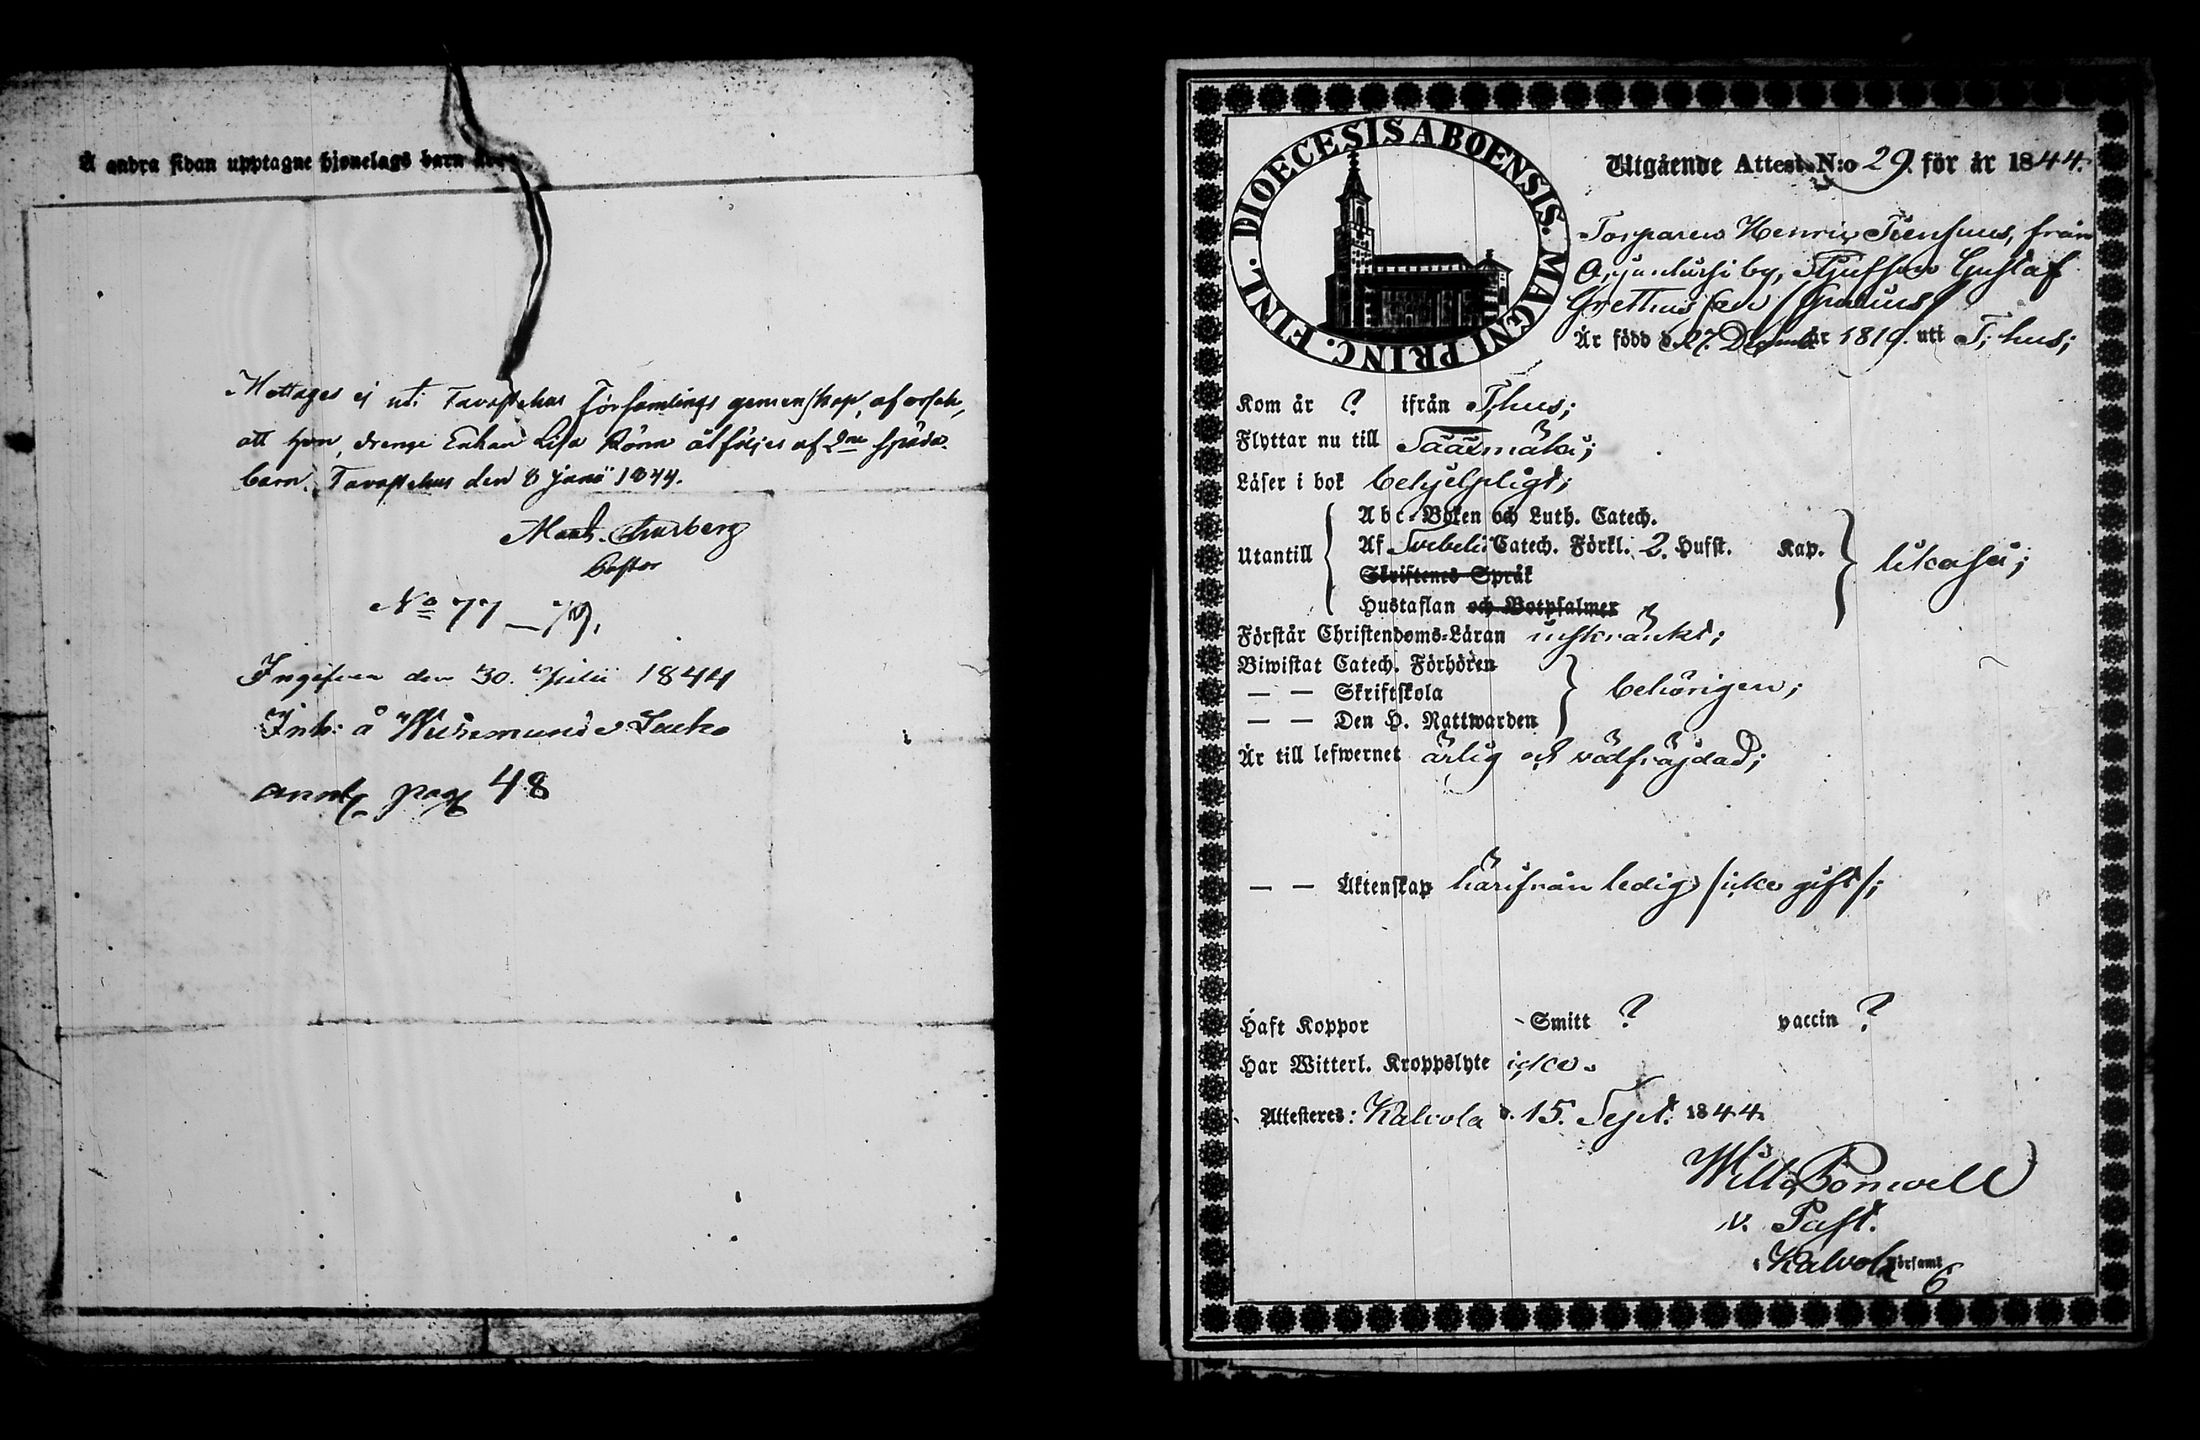 Å andra sidan upptagne hjonelags barn
Mottages ej uti Tavastehus Församlings gemenskap, af orsak,
att hon, Enkan Lisa åtföljes af späda
barn. Tavastehus den 8 Junii 1844.
Pastor
No 77 — 79.
Ingifven den 30. Julii 1844
Inh: å
annot. pag 48
DIOECESIS ABOENSIS. MAGNI PRINC. FINL.
Utgående Attest. N:o 29. för år 1844.
Torparen Henric från
by, Gustaf
Är född d. 27. år 1819. uti T; hus;
Kom år ? ifrån T;hus;
Flyttar nu till Sääxmäki;
Läser i bok behjelpligt;
Abc-Boken och Luth. Catech.
Utantill Af Svebelii Catech. Förkl. 2. Hufst. Kap. likaså;
Skriftenes Språk
Hustaflan och Botpsalmer
Förstår Christendoms-Läran inskränkt;
Biwistat Catech. Förhören
— — Skriftskola behörigen;
— — Den H. Nattwarden
Är till lefwernet ärlig och välfräjdad;
— — Äktenskap härifrån ledig /icke gift/;
Haft Koppor Smitt ? vaccin ?
Har Witterl. Kroppslyte icke.
Attesteres: Kalvola d. 15. Sept. 1844.
Bonwell
v. Past.
i Kalvola Församl.
6